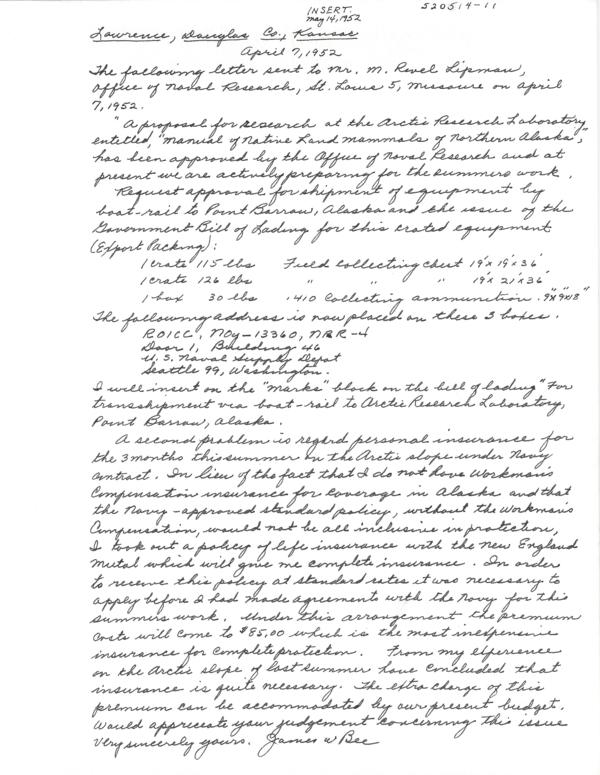 INSERT.
may 14, 1952
520514-11
Lawrence, Douglas Co., Kansas
April 7, 1952
The following letter sent to Mr. M. Revel Lipman,
Office of Naval Research, St. Louis 5, Missouri on April
7, 1952.
"A proposal for research at the Arctic Research Laboratory
entitled, "Manual of Native Land mammals of Northern Alaska",
has been approved by the Office of Naval Research and at
present we are actively preparing for the summers work.
Request approval for shipment of equipment by
boat-rail to Point Barrow, Alaska and the issue of the
Government Bill of Lading for this crated equipment
(Export Packing):
1 crate 115 lbs Field collecting chest 19"x 19"x 36"
1 crate 126 lbs " " " 19"x 21"x 36"
1 box 30 lbs .410 Collecting ammunition. 9"x9"x18"
The following address is now placed on these 3 boxes.
ROICC, NOy-13360, NRR-4
Door 1, Building 46
U.S. Naval Supply Depot
Seattle 99, Washington.
I will insert on the "marks" block on the bill of lading "For
transshipment via boat-rail to Arctic Research Laboratory,
Point Barrow, Alaska.
A second problem is regard personal insurance for
the 3 months this summer on the Arctic slope under Navy
contract. In lieu of the fact that I do not have Workman's
Compensation insurance for coverage in Alaska and that
the Navy-approved standard policy, without the Workman's
Compensation, would not be all inclusive in protection,
I took out a policy of life insurance with the New England
Mutal which will give me complete insurance. In order
to receive this policy at standard rates it was necessary to
apply before I had made agreements with the Navy for this
summers work. Under this arrangement the premium
costs will come to $85.00 which is the most inexpensive
insurance for complete protection. From my experience
on the Arctic slope of last summer have concluded that
insurance is quite necessary. The extra charge of this
premium can be accommodated by our present budget.
Would appreciate your judgement concerning this issue
Very sincerely yours. James W Bee